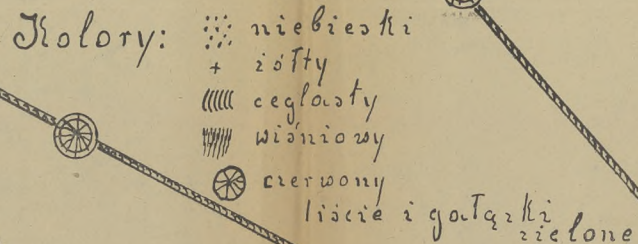 Kolory: niebieski
żółty
ceglasty
wiśniowy
czerwony
liście i gałązki
zielone